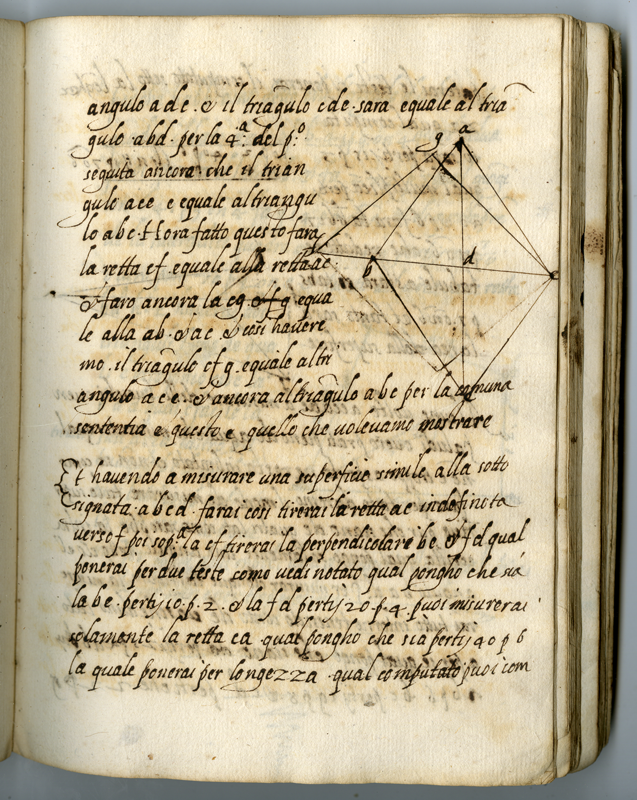 angulo a d e. & il triãgulo c d e. sara equale al triã
gulo. a b d. per la 4.ª del p.º
seguita ancora. che il trian
gulo a c e e equale al triangu
lo a b c. Hora fatto questo fara
la retta e f. equale alla retta a c.
& faro ancora la e g. & f g. equa
le alla a b. & a c & cosi havere
mo. il triãgulo e f g. equale al tri
angulo a c e. & ancora al triãgulo a b c per la comuna
sententia e questo e quello che volevamo mostrare
Et havendo a misurare una superficie simile alla sotto
signata. a b c d. farai cosi tirerai la retta a c indefinota
verso f poi sopª la c f tirerai la perpendicolare b e. & f d qual
ponerai per due teste como vedi notato qual pongho che sia
la b e. pertij 10. p. 2. & la f d pertij 20. p. 4. puoi misurerai
solamente la retta c a qual pongho che sia pertij 40 p 6
la quale ponerai per longezza. qual computato puoi com
g a
b d